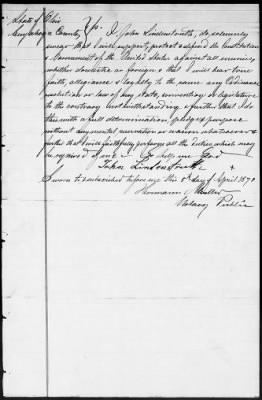 State of Ohio
Cuyahoga County } ss. I, John Lindersmith, do solemnly
swear that I will support, protect & defend the Constitution
& Government of the United States against all enemies,
whether domestic or foreign & that I will bear true
faith, allegiance & loyalty to the same any Ordinance
resolution or law of any state, convention or legislature
to the contrary notwithstanding & further that I do
this with a full determination, pledge & purpose
without any mental reservation or evasion whatsoever &
further that I will faithfully perform all the duties which may
be required of me. So help me God
John
Sworn to & subscribed before me this day of April 187
Hermann Mueller
Notary Public